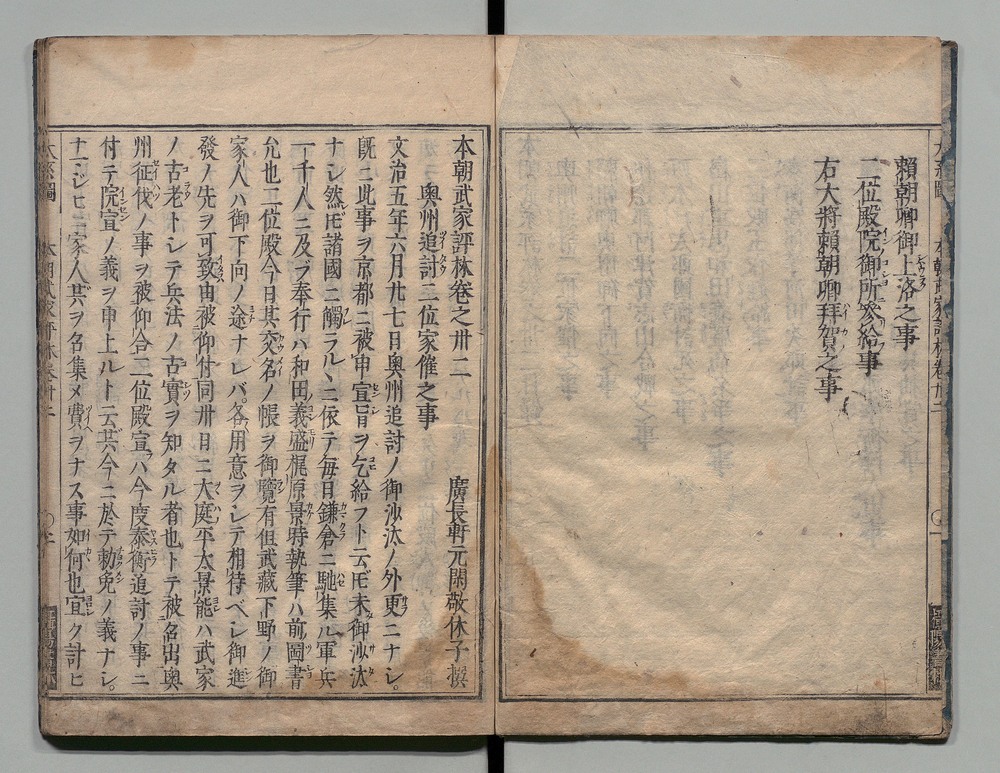 賴朝卿御上洛之事
二位殿院御所參給事
右大將賴朝卿拜賀之事
本朝武家評林卷之卅二
廣長軒元閑敬休子撰
奥州追討二位家催之事
文治五年六月廿七日奥州追討ノ御沙汰ノ外更ニナシ。
既ニ此事ヲ京都ニ被申宣旨ヲ乞給フト云𪜈未御沙汰
ナシ然𪜈諸國ニ觸ラルヽニ依テ毎日鎌倉ニ馳集ル軍兵
一千人ニ及ブ奉行ハ和田義盛梶原景時執筆ハ前圖書
允也二位殿今日其交名ノ帳ヲ御覽有但武藏下野ノ御
家人ハ御下向ノ途ナレバ。各用意ヲシテ相待ベシ御進
發ノ先ヲ可致由被仰付同卅日ニ大庭平太景能ハ武家
ノ古老トシテ兵法ノ古實ヲ知タル者也トテ被名出奥
州征伐ノ事ヲ被仰合二位殿宣ハ今度泰衡追討ノ事ニ
付テ院宣ノ義ヲ申上ルト云共今ニ於テ勅免ノ義ナシ。
ナマジヒニ家人共ヲ名集メ費ヲナス事如何也宜ク計ヒ